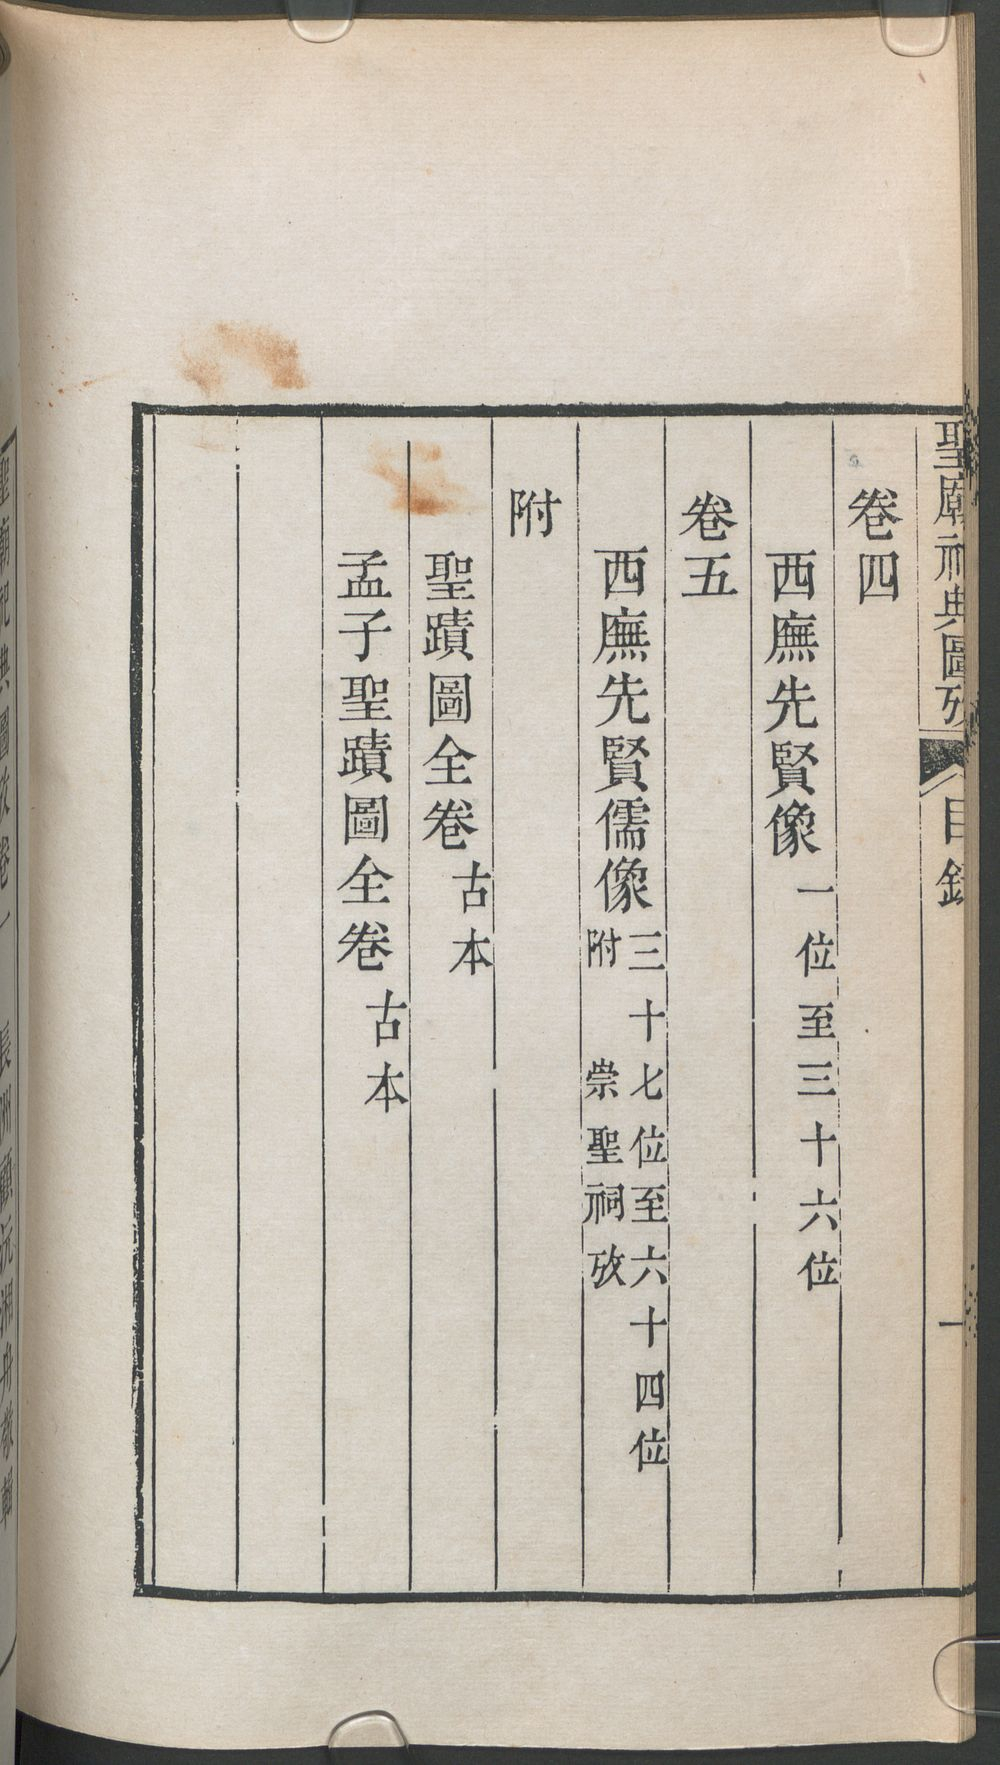 聖廟祀典圖攷
目錄
一
卷四
西廡先賢像 一位至三十六位
卷五
西廡先賢儒像 三十七位至六十四位
附 崇聖祠攷
附
聖蹟圖全卷 古本
孟子聖蹟圖全卷 古本
聖廟祀典圖攷卷一 長洲顧沅湘舟敬輯